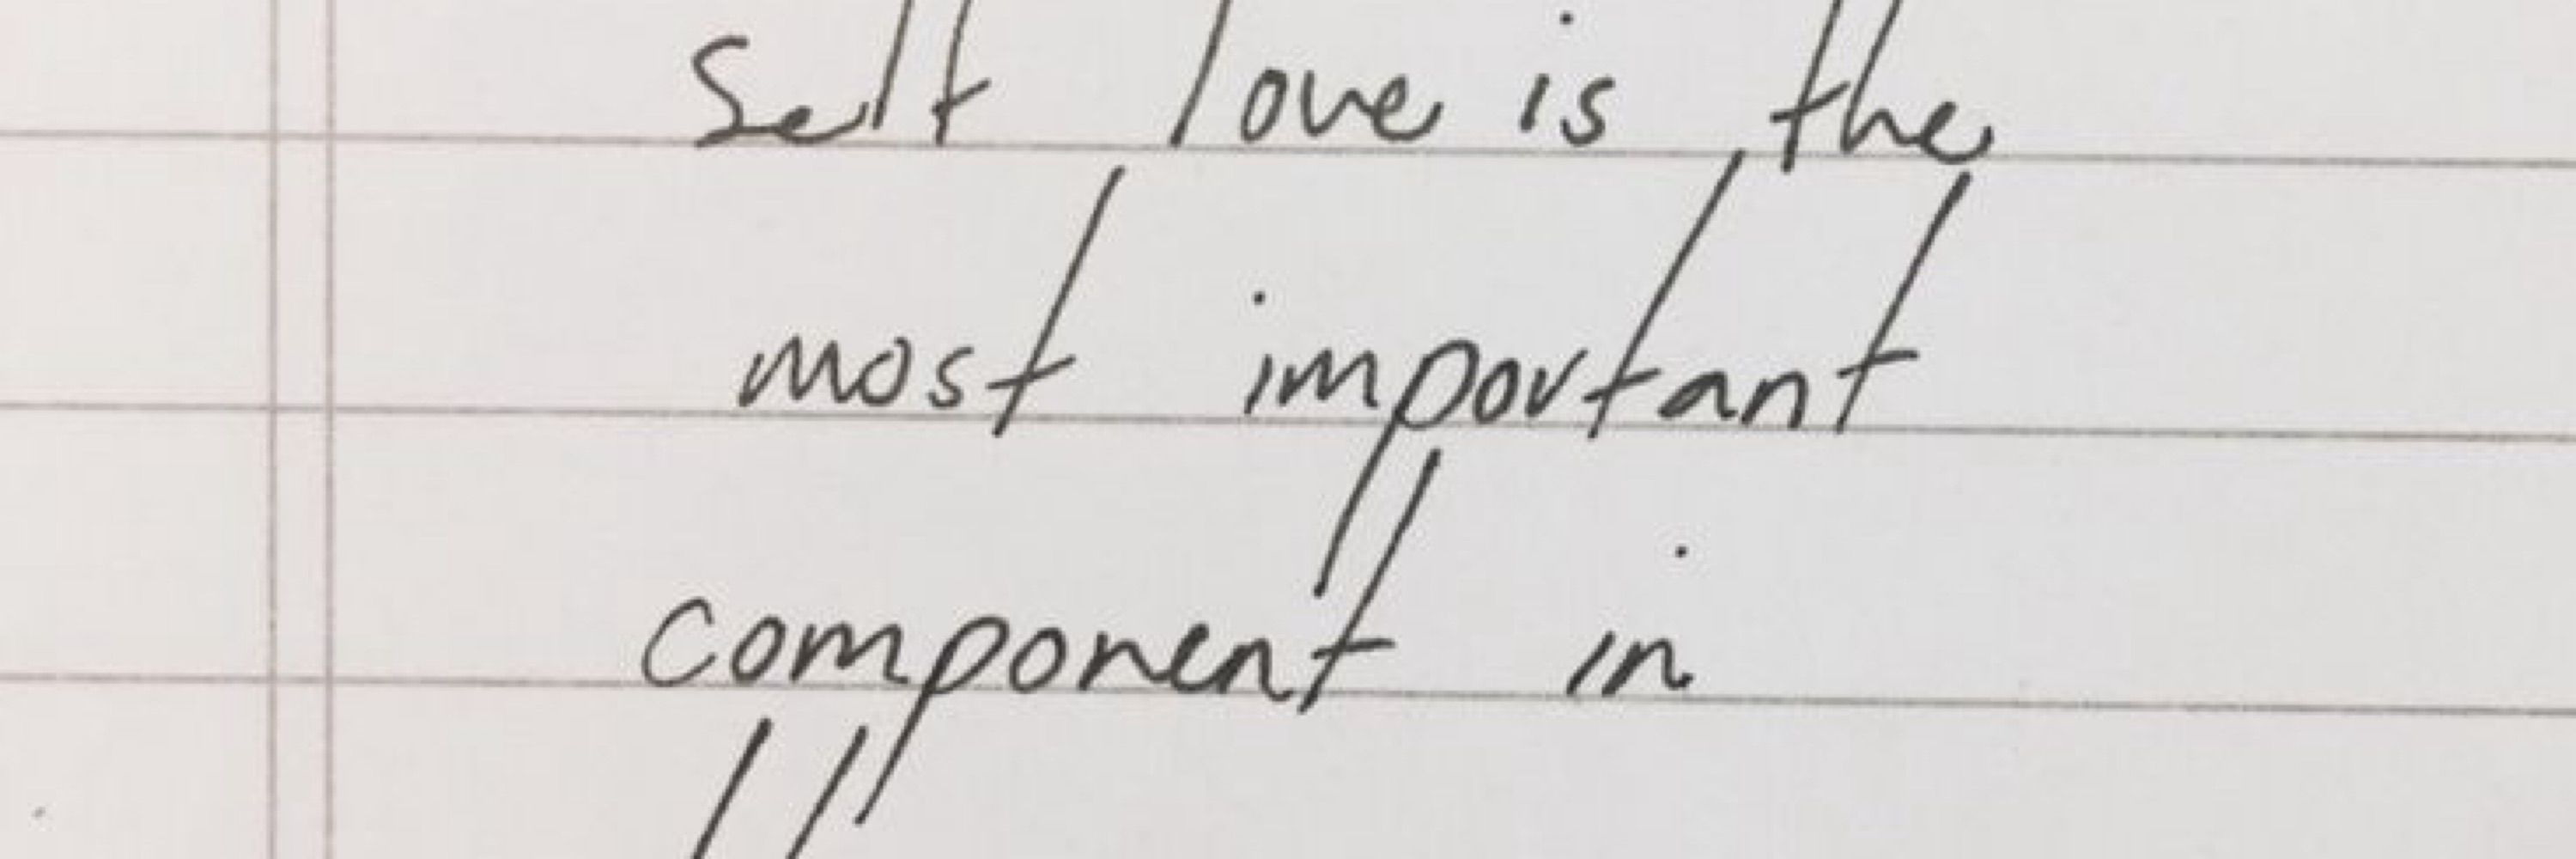 Self love is the
most important
component in